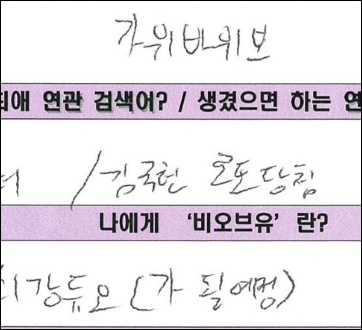 가위바위보
최애 연관 검색어? / 생겼으면 하는 연
터 /김국헌 로또당첨
나에게 '비오브유' 란?
최강듀오 (가 될예정)